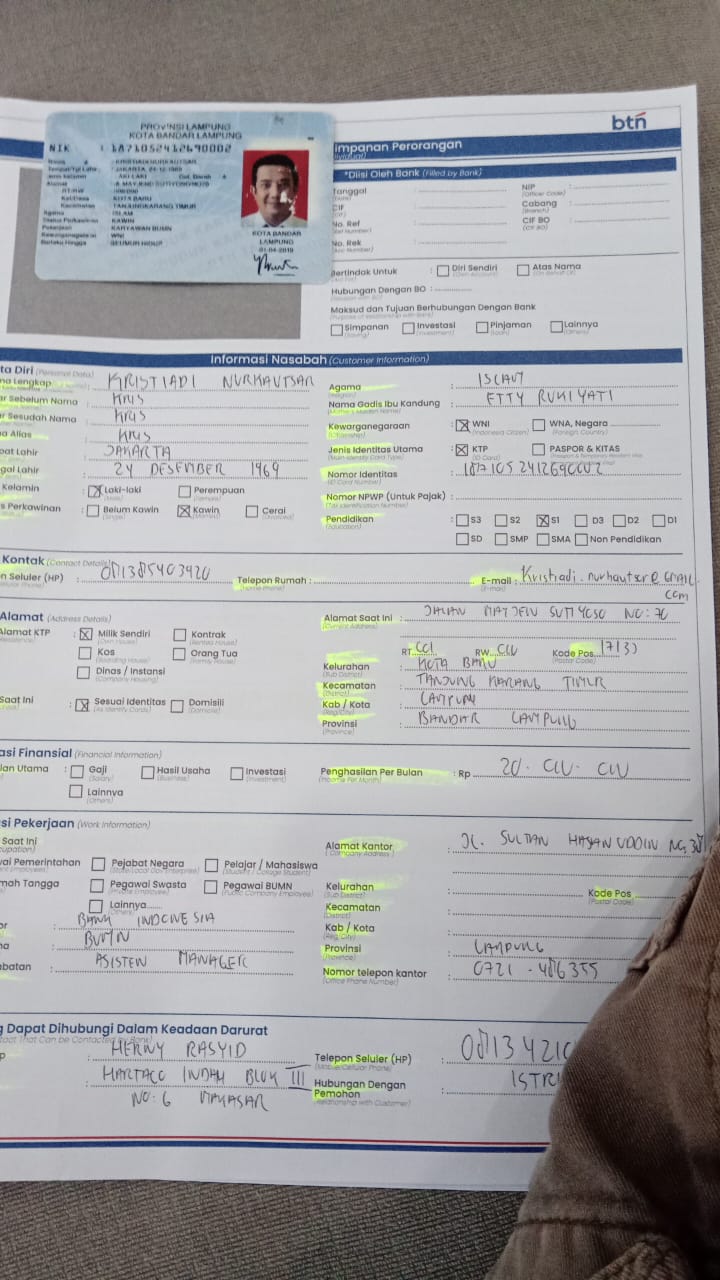 btn
PROVINSI LAMPUNG
KOTA BANDAR LAMPUNG
NIK : 1871052412690002
KRISTIADI NURKAUTSAR
LAKI-LAKI
KOTA BARU
TANJUNGKARANG TIMUR
ISLAM
KAWIN
KARYAWAN BUMN
WNI
SEUMUR HIDUP
KOTA BANDAR
LAMPUNG
01-04-2018
impanan Perorangan
*Diisi Oleh Bank (Filled by Bank)
Tanggal
NIP
CIF
Cabang
(Branch)
No. Ref
CIF BO
(CIF BO)
No. Rek
Bertindak Untuk
Diri Sendiri
Atas Nama
Hubungan Dengan BO :
Maksud dan Tujuan Berhubungan Dengan Bank
Simpanan
Investasi
Pinjaman
Lainnya
Informasi Nasabah (Customer Information)
ta Diri (Personal Data)
na Lengkap : KRISTIADI NURKAUTSAR
ar Sebelum Nama : KRIS
ar Sesudah Nama : KRIS
na Alias : KRIS
pat Lahir : JAKARTA
gal Lahir : 24 DESEMBER 1969
Kelamin : Laki-laki Perempuan
s Perkawinan : Belum Kawin Kawin Cerai
Agama : ISLAM
Nama Gadis Ibu Kandung : ETTY RUKIYATI
Kewarganegaraan : WNI WNA, Negara
Jenis Identitas Utama : KTP PASPOR & KITAS
Nomor Identitas : 1871052412690002
Nomor NPWP (Untuk Pajak) :
Pendidikan : S3 S2 S1 D3 D2 D1
SD SMP SMA Non Pendidikan
Kontak (Contact Details)
n Seluler (HP) : 081385403420
Telepon Rumah :
E-mail : Kristiadi.nurkautsr@GMAIL.
com
Alamat (Address Details)
Alamat KTP : Milik Sendiri Kontrak
Kos Orang Tua
Dinas / Instansi
Saat Ini : Sesuai Identitas Domisili
Alamat Saat Ini : JALAN MAYJEN SUTIYOSO NO: 70
RT RW Kode Pos
Kelurahan : KOTA BARU
Kecamatan : TANJUNG KARANG TIMUR
Kab / Kota : LAMPUNG
Provinsi : BANDAR LAMPUNG
asi Finansial (Financial Information)
lan Utama : Gaji Hasil Usaha Investasi
Lainnya
Penghasilan Per Bulan : Rp 20. 000. 000
si Pekerjaan (Work Information)
Saat Ini
wai Pemerintahan Pejabat Negara Pelajar / Mahasiswa
mah Tangga Pegawai Swasta Pegawai BUMN
Lainnya
BANK INDONESIA
BUMN
batan : ASISTEN MANAGER
Alamat Kantor : JL. SULTAN HASANUDDIN NO 38
Kelurahan
Kode Pos
Kecamatan
Kab / Kota
Provinsi : LAMPUNG
Nomor telepon kantor : 0721 - 486355
g Dapat Dihubungi Dalam Keadaan Darurat
HERNY RASYID
HARTACO INDAH BLOK III
NO: 6 MAKASAR
Telepon Seluler (HP)
Hubungan Dengan
Pemohon
: ISTRI